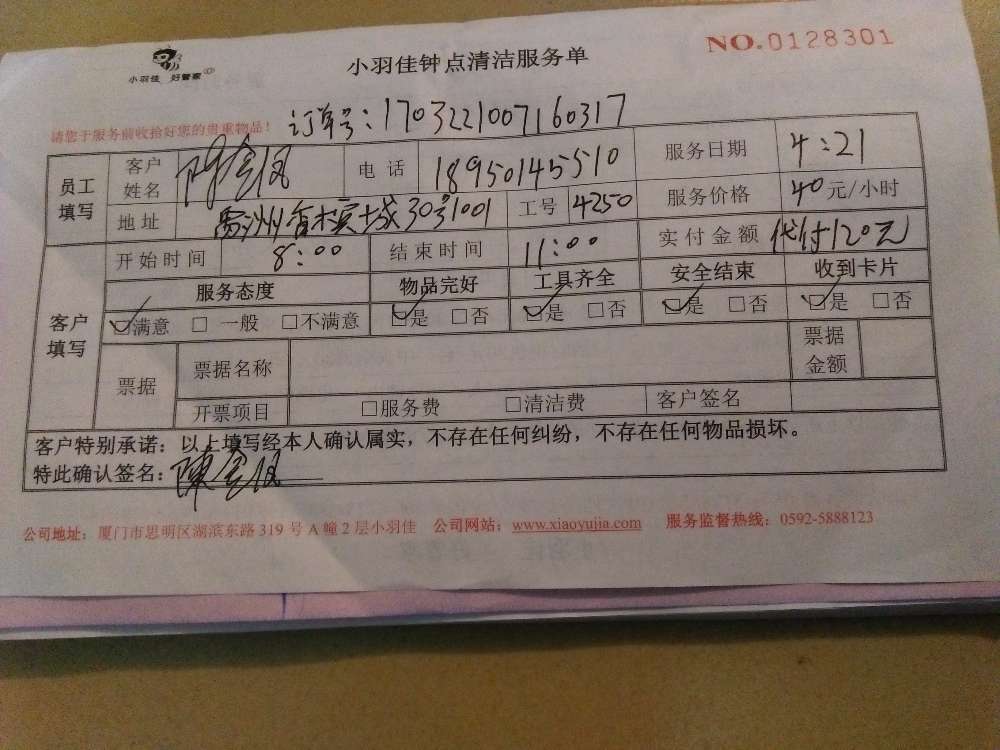 小羽佳 好管家
小羽佳钟点清洁服务单
NO.0128301
请您于服务前收拾好您的贵重物品!
订单号:1703221007160317
员工填写
客户姓名
电话 18950145510
服务日期 4:21
地址 30号1001
工号 4250
服务价格 40元/小时
开始时间 8:00
结束时间 11:00
实付金额 代付120元
客户填写
服务态度 物品完好 工具齐全 安全结束 收到卡片
☑满意 □ 一般 □不满意 ☑是 □否 ☑是 □否 ☑是 □否 ☑是 □否
票据
票据名称
票据金额
开票项目 □服务费 □清洁费 客户签名
客户特别承诺:以上填写经本人确认属实,不存在任何纠纷,不存在任何物品损坏。
特此确认签名:
公司地址:厦门市思明区湖滨东路 319 号 A 幢 2 层小羽佳 公司网站:www.xiaoyujia.com 服务监督热线:0592-5888123